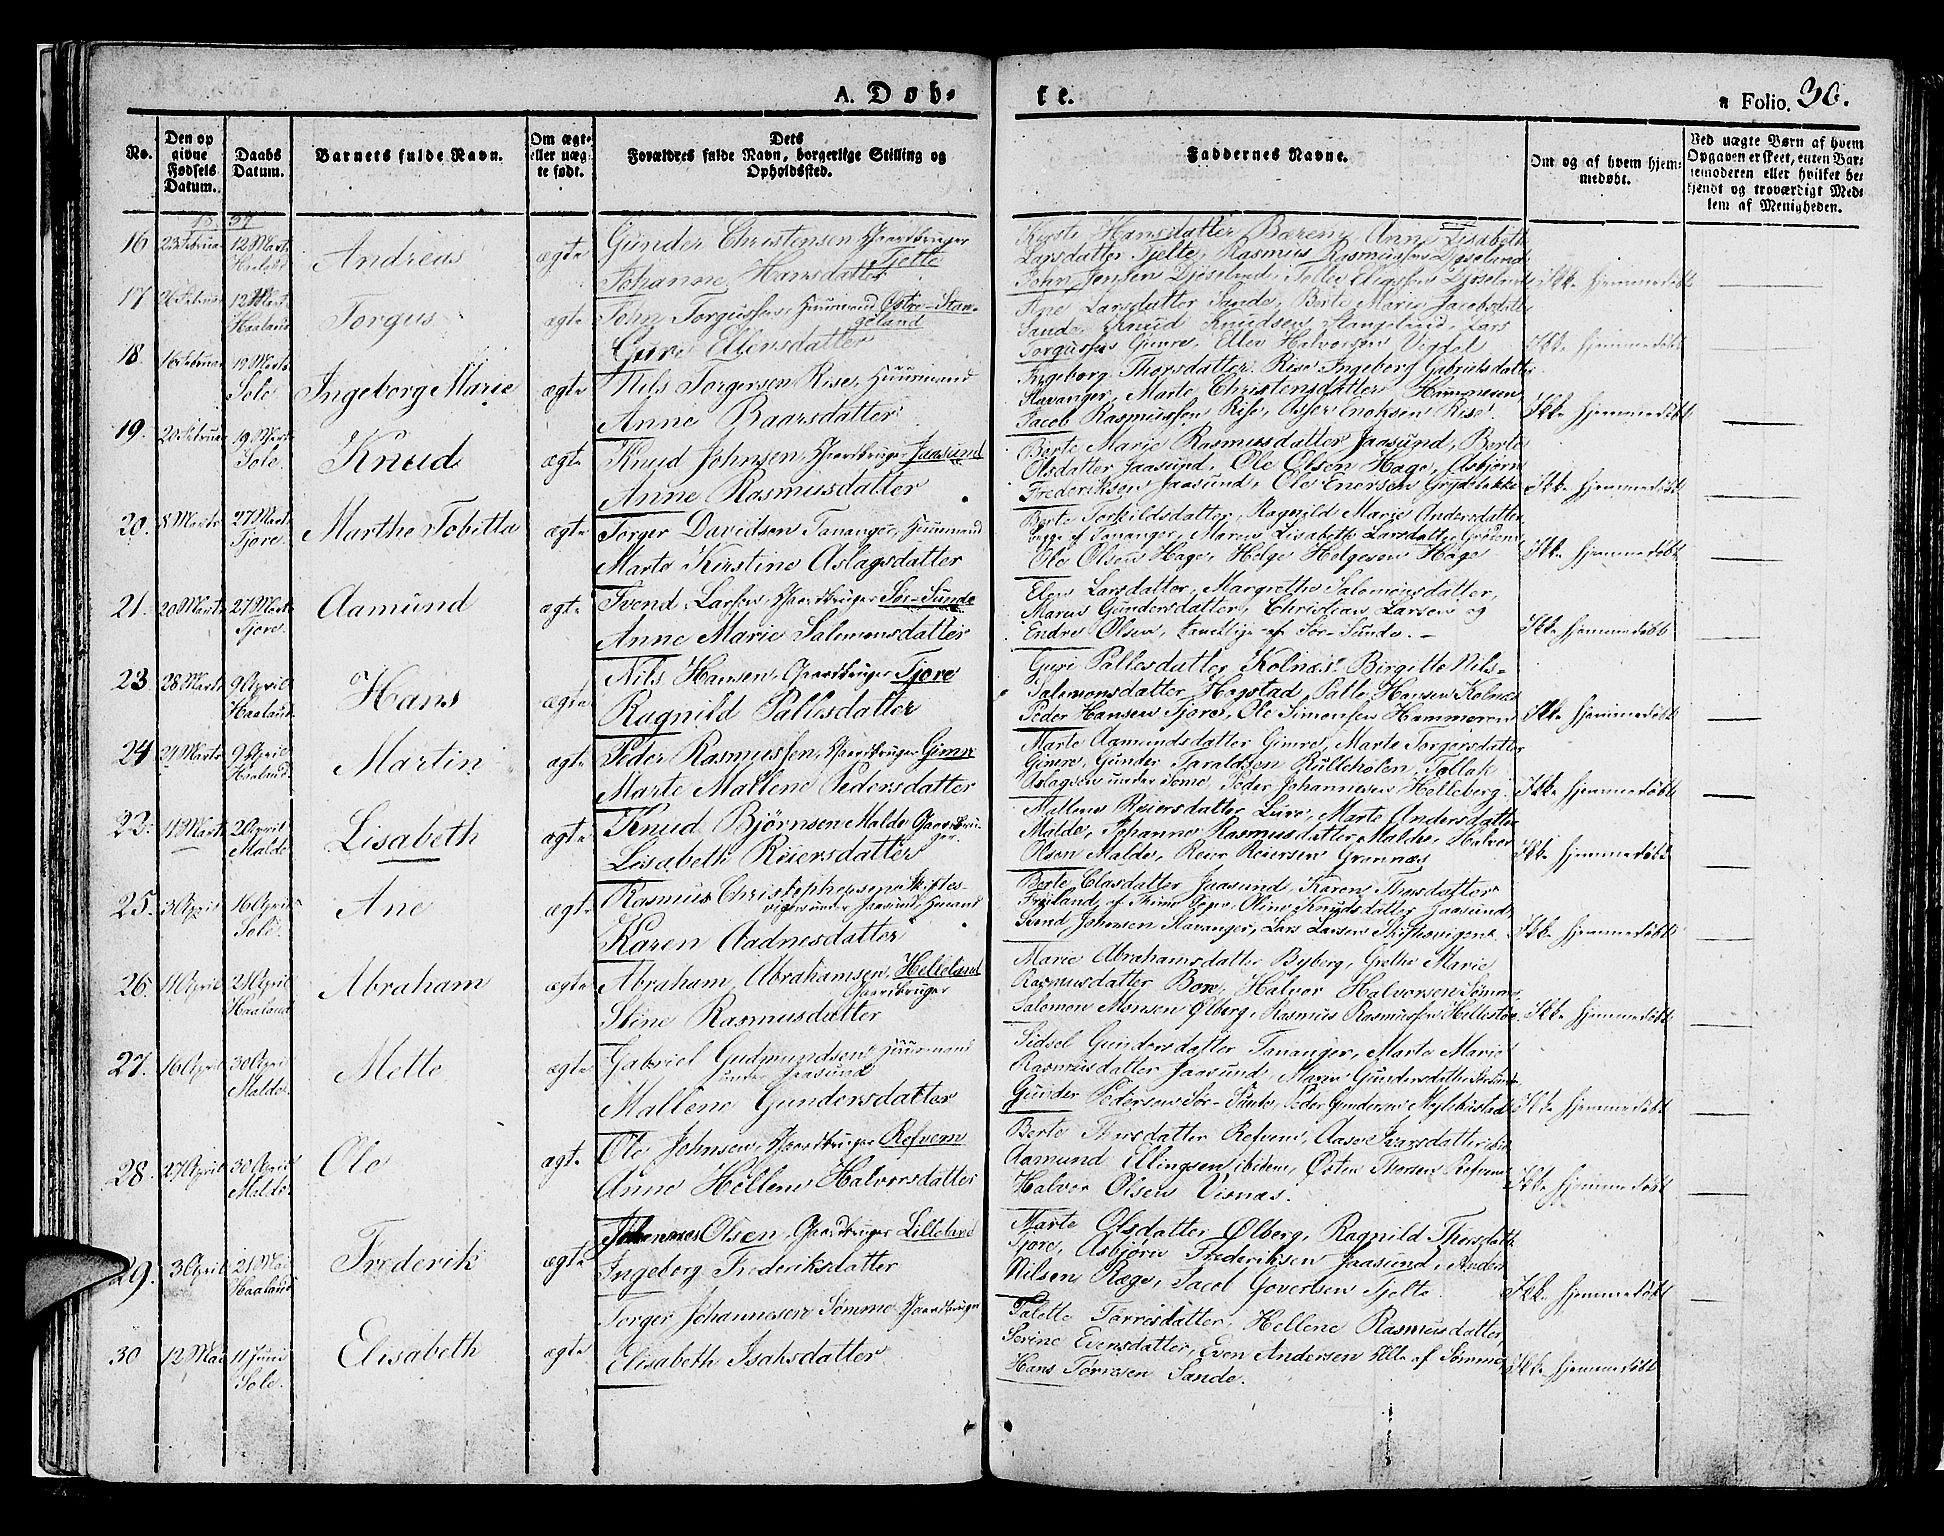 A. Døb-
te.
Folio. 36.
No.
Den opgivne Fødsels Datum.
Daabs Datum.
Barnets fulde Navn.
Om ægte eller uægte født.
Dets Forældres fulde Navn, borgerlige Stilling og Opholdsted.
Faddernes Navne.
Om og af hvem hjemmedøbt.
Ved uægte Børn af hvem Opgaven er skeet, enten Barnemoderen eller hvilket bekjendt og troværdigt Medlem af Menigheden.
1837
16 23 Februar 12 Marts Haaland Andreas ægte Gunder Christensen Gaardbruger Tjelte
Johanne Hansdatter
Kirste Hansdatter Anne Lisabeth
Larsdatter Tjelte, Rasmus Rasmussen
John Jensen
Ikke hjemmedøbt
17 26 Februar 12 Marts Haaland Torgus ægte John Torgussen, Huusmand Østre-Stangeland
Guro Ellensdatter
Ane Larsdatter Sande, Berte Marie Jacobsdatter
Sande, Knud Knudsen Stangeland, Lars
Torgussen Gimre, Ellev Halvorsen Vigdel
Ikke hjemmedøbt
18. 16 Februar 19 Marts Sole Ingeborg Marie ægte Nils Torgersen Rise, Huusmand
Anne Baarsdatter
Ingeborg Thorsdatter, Rise Ingeborg Gabrielsdatter
Stavanger, Marte Christensdatter Hammeren,
Jacob Rasmussen Rise, Enoksen Rise.
Ikke hjemmedøbt
19. 20 Februar 19 Marts Sole. Knud ægte Knud Johnsen, Gaardbruger Jaasund
Anne Rasmusdatter
Berte Marie Rasmusdatter Jaasund, Berte
Olsdatter Jaasund, Ole Olsen Hage, Asbjørn
Frederiksen Jaasund, Ole Enersen
Ikke hjemmedøbt
20. 8 Marts 27 Marts Tjore. Marthe Tobitta ægte Torger Davidsen Tananger, Huusmand
Marte Kirstine Aslagsdatter
Berte Torkildsdatter, Ragnild Marie Andersdatter
begge af Tananger, Maren Lisabeth Larsdatter
Ole Olsen Hage, Helge Helgesen Hage
Ikke hjemmedøbt
21. 20 Marts 27 Marts Tjore. Aamund ægte Svend Larsen, Gaardbruger Sør-Sunde
Anne Marie Salomonsdatter
Elen Larsdatter, Margrethe Salomonsdatter,
Maren Gundersdatter, Christian Larsen og
Endre Olsen, samtlige af Sør-Sunde. –
Ikke hjemmedøbt
23 28 Marts 9 April Haaland Hans ægte Nils Hansen, Gaardbruger Tjore
Ragnild Pallesdatter
Guri Pallesdatter, Kolnæs. Birgitte Nils-
Salomonsdatter Hogstad, Palle Hansen Kolnæs
Peder Hansen Tjore, Ole Simonsen Hammeren
Ikke hjemmedøbt
24 21 Marts 9 April Haaland Martin ægte Peder Rasmussen, Gaardbruger Gimre
Marte Mallene Pedersdatter
Marte Aamundsdatter Gimre, Marte Torgersdatter
Gimre, Gunder Taraldsen Tollak
Aslagsen Peder Johannesen Helleberg
Ikke hjemmedøbt
22. 4 Marts 2 April Malde Lisabeth ægte Knud Bjørnsen Malde Gaardbruger.
Lisabeth Reiersdatter
Mallene Reiersdatter Lure, Marte Andersdatter
Malde, Johanne Rasmusdatter Malde, Halvor
Olsen Malde, Reier Reiersen Grannæs
Ikke hjemmedøbt
25. 3 April 16 April Sole. Ane ægte Rasmus Christophersen Skiftesvigen under Jaasund,
Karen Aadnesdatter
Berte Clasdatter Jaasund, Karen Thorsdatter
Oline Knudsdatter Jaasund
Johnsen Stavanger, Lars Larsen Skiftesvigen.
Ikke hjemmedøbt
26. 4 April 21 April Haaland Abraham ægte Abraham Abrahamsen, Helleland
Gaardbruger
Stine Rasmusdatter
Marie Abrahamsdatter Byberg, Grethe Marie
Rasmusdatter Bore, Halvor Halvorsen Sømme,
Salomon Monsen Ølberg, Rasmus Rasmussen Hellestøe
Ikke hjemmedøbt
27. 16 April 30 April Malde. Mette ægte Gabriel Gudmundsen Huusmand
under Jaasund
Mallene Gundersdatter
Sidsel Gundersdatter Tananger, Marte Marie
Rasmusdatter Jaasund, Maren Gundersdatter
Gunder Pedersen Sør-Sunde, Peder Gundersen Myklebustad
Ikke hjemmedøbt
28. 27 April 30 April Malde. Ole ægte Ole Johnsen, Gaardbruger Refvem
Anne Hellene Halvorsdatter
Berte Iversdatter Refvem, Aase Ivarsdatter
Aamund Ellingsen ibidem, Østen Thorsen Refvem
Halvor Olsen Visnæs.
Ikke hjemmedøbt
29. 3 April 21 Mai Haaland Frederik ægte Johannes Olsen, Gaardbruger Lilleland
Ingeborg Frederiksdatter
Marte Olsdatter Ølberg, Ragnild Thorsdatter
Tjore, Asbjørn Frederiksen Jaasund, Anders
Nilsen Ræge, Jacob Govertsen Tjelte.
Ikke hjemmedøbt
30 12 Mai 11 Juni Sole. Elisabeth ægte Torger Johannesen Sømme Gaardbruger
Elisabeth Isaksdatter
Palette Tørrisdatter, Hellene Rasmusdatter,
Serine Evensdatter, Even Andersen Alle af Sømme
Hans Tørresen Sande.
Ikke hjemmedøbt